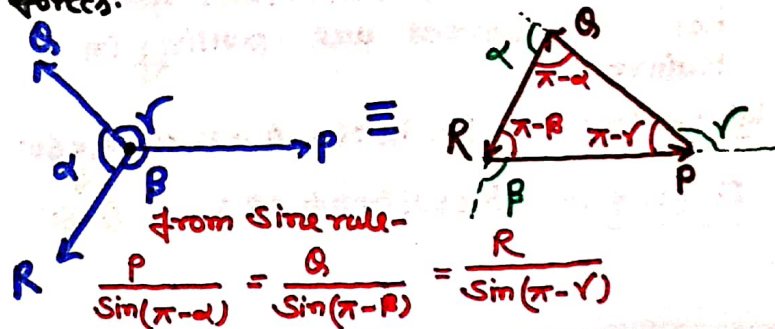 forces.
Q γ α β P R
≡
α Q π-α
R π-β π-γ γ
β P
from Sine rule-
P/Sin(π-α) = Q/Sin(π-β) = R/Sin(π-γ)